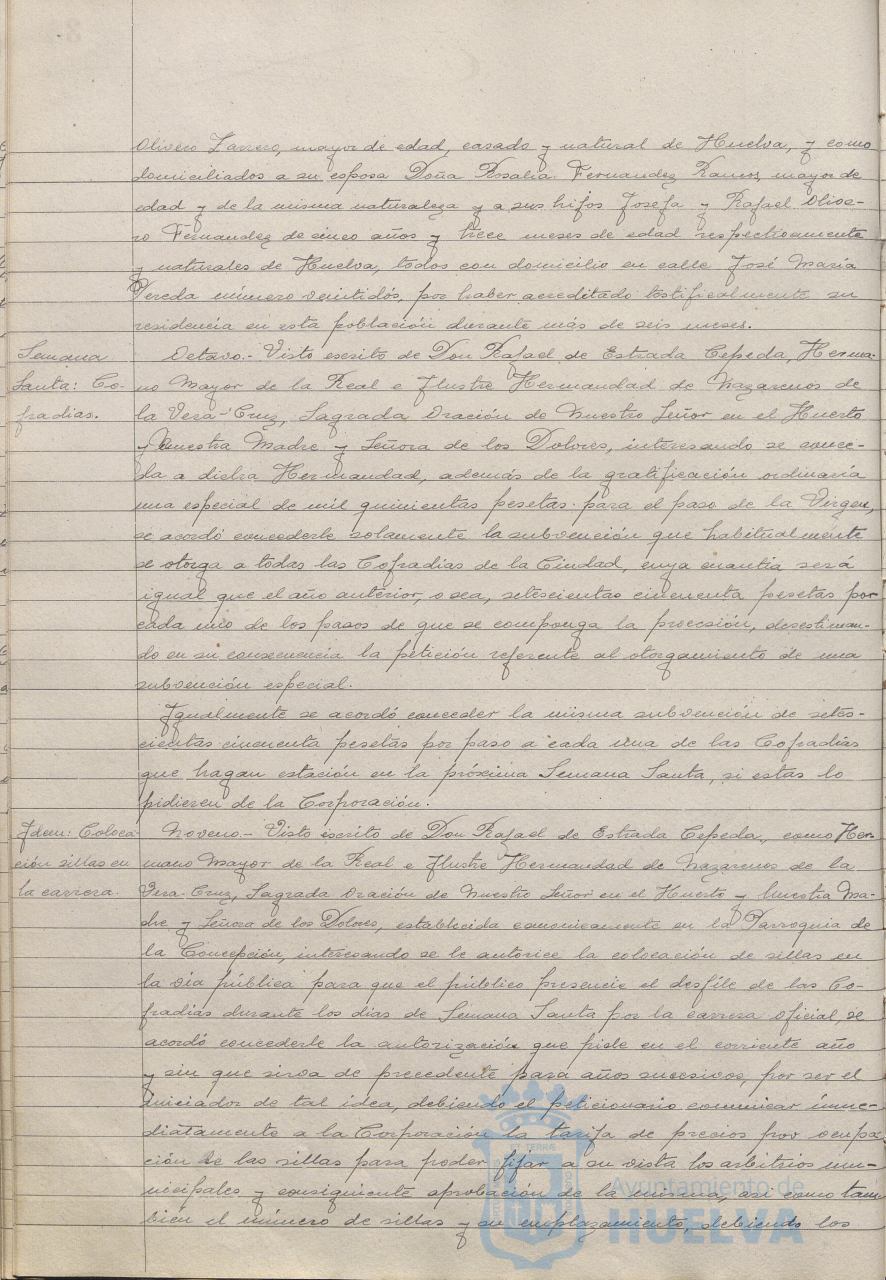 Olivero Larrero, mayor de edad, casado y natural de Huelva, y como
domiciliados a su esposa Doña Rosalia Fernandez Ramos, mayor de
edad y de la misma naturaleza y a sus hijos Josefa y Rafael Olive-
ro Fernandez de cinco años y trece meses de edad respectivamente
y naturales de Huelva, todos con domicilio en calle José Maria
Pereda número veintidós, por haber acreditado testificalmente su
residencia en esta población durante más de seis meses.
Semana
Santa: Co-
fradias.
Octavo.- Visto escrito de Don Rafael de Estrada Cepeda, Herma-
no Mayor de la Real e Ilustre Hermandad de Nazarenos de
la Vera-Cruz, Sagrada Oración de Nuestro Señor en el Huerto
y Nuestra Madre y Señora de los Dolores, interesando se conce-
da a dicha Hermandad, además de la gratificación ordinaria
una especial de mil quinientas pesetas para el paso de la Virgen,
se acordó concederle solamente la subvención que habitualmente
se otorga a todas las Cofradias de la Ciudad, cuya cuantia será
igual que el año anterior, o sea, setescientas cincuenta pesetas por
cada uno de los pasos de que se componga la procesión, desestiman-
do en su consecuencia la petición referente al otorgamiento de una
subvención especial.
Igualmente se acordó conceder la misma subvención de setes-
cientas cincuenta pesetas por paso a cada una de las Cofradias
que hagan estación en la próxima Semana Santa, si estas lo
pidieren de la Corporación.
Idem: Coloca-
ción sillas en
la carrera.
Noveno.- Visto escrito de Don Rafael de Estrada Cepeda, como Her-
mano Mayor de la Real e Ilustre Hermandad de Nazarenos de la
Vera-Cruz, Sagrada Oración de Nuestro Señor en el Huerto y Nuestra Ma-
dre y Señora de los Dolores, establecida canonicamente en la Parroquia de
la Concepción, interesando se le autorice la colocación de sillas en
la via pública para que el público presencie el desfile de las Co-
fradias durante los dias de Semana Santa por la carrera oficial, se
acordó concederle la autorización que pide en el corriente año
y sin que sirva de precedente para años sucesivos, por ser el
iniciador de tal idea, debiendo el peticionario comunicar inme-
diatamente a la Corporación la tarifa de precios por ocupa-
ción de las sillas para poder fijar a su vista los arbitrios mu-
nicipales y consiguiente aprobación de la misma, asi como tam
bién el número de sillas y su emplazamiento, debiendo los
Ayuntamiento de
HUELVA